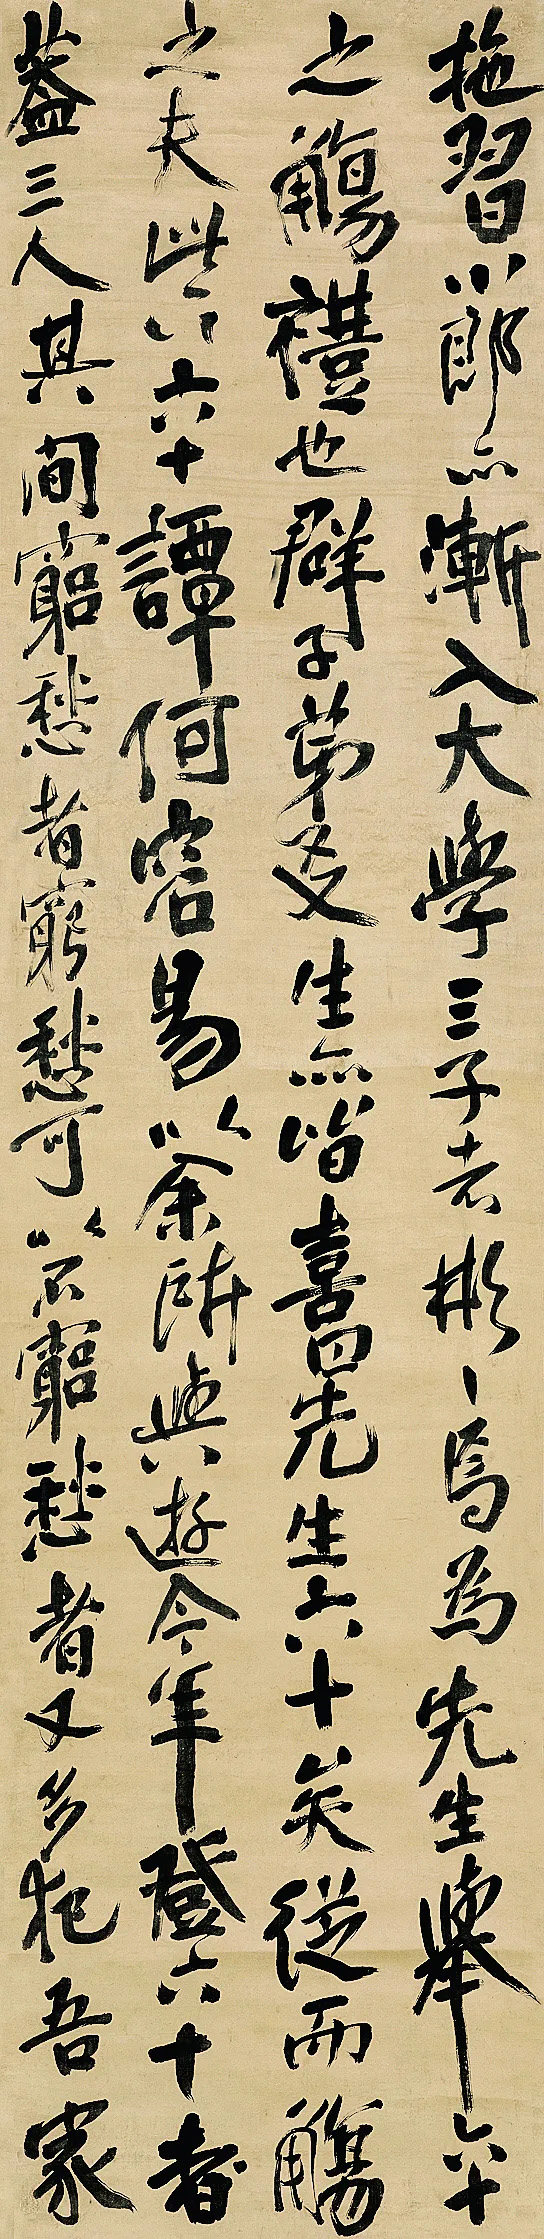 拖習小郎亦漸入大學三子者彬〻焉為先生舉六十
之觴禮也群子弟友生亦皆喜曰先生六十矣從而觴
之夫此六十譚何容易以余所與遊今年登六十者
蓋三人其間窮愁者窮愁可以不窮愁者又多犯吾家